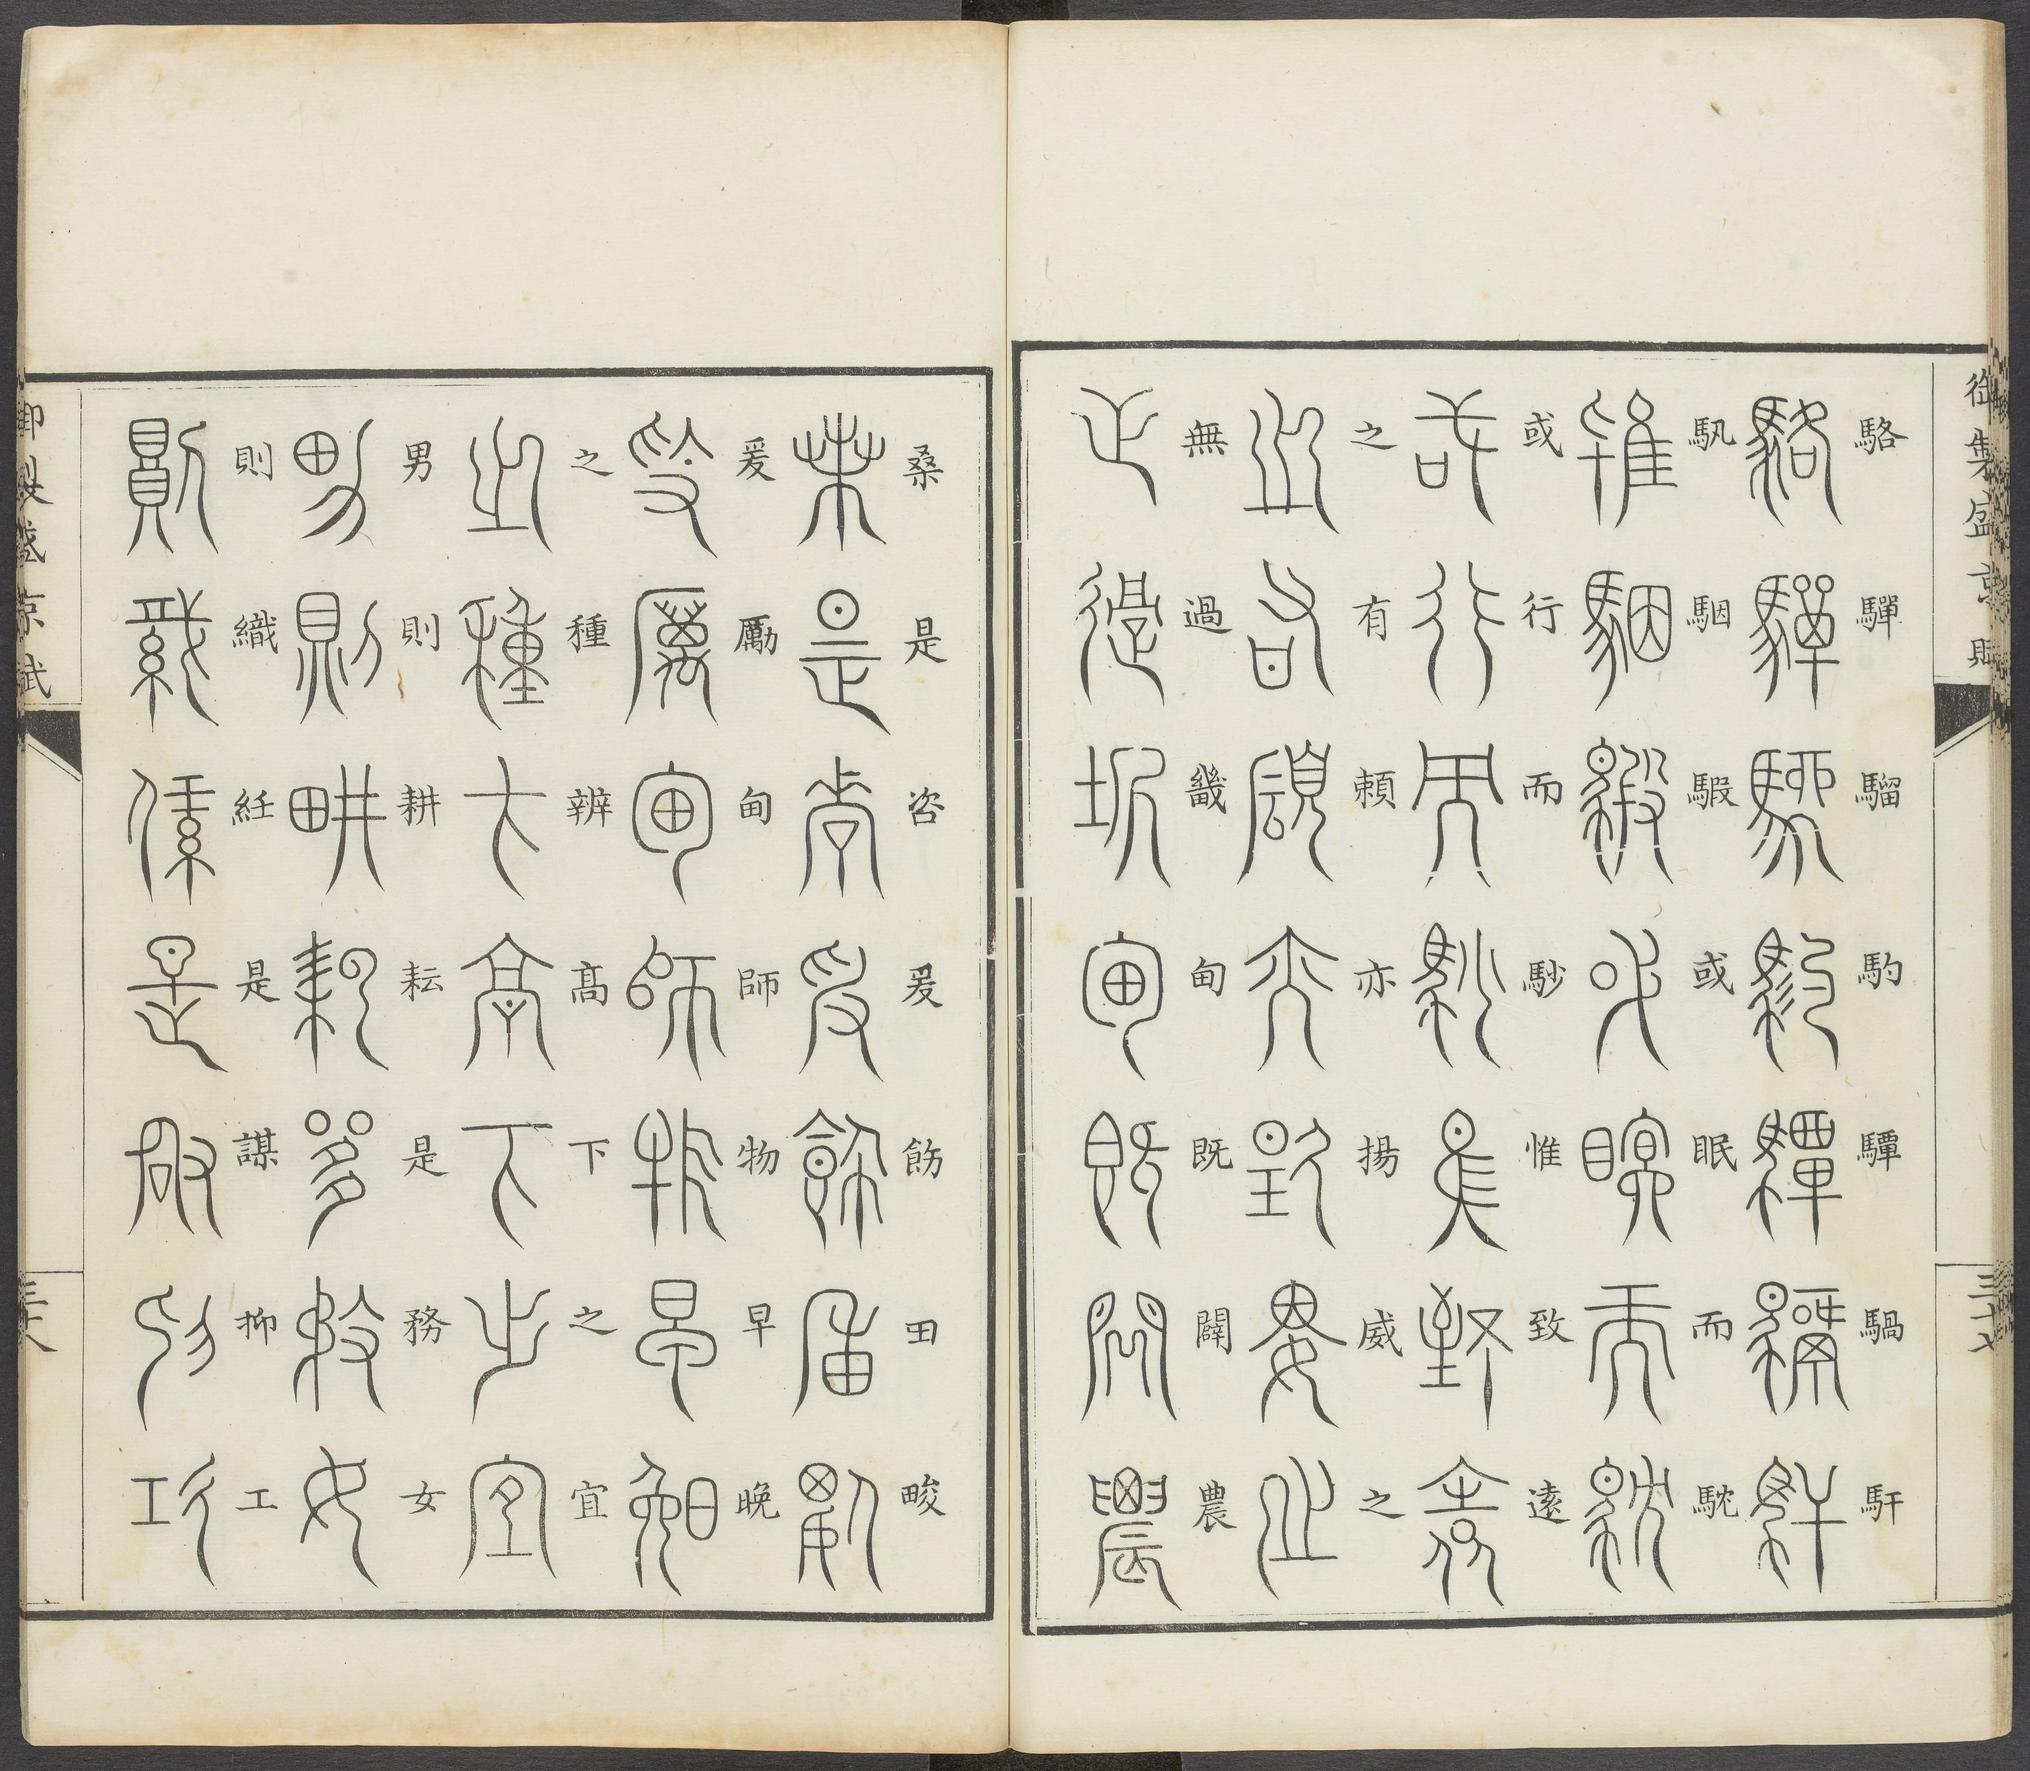 御製盛京賦
駱驒騮馰驔騧馯
䮄駰騢或眠而䭴
或行而䮁惟致遠
之有賴亦揚威之
無過畿甸既闢農
三十七
桑是咨爰飭田畯
爰勵甸師物早晚
之種辨高下之宜
男則耕耘是務女
則織紝是謀抑工
御製盛京賦